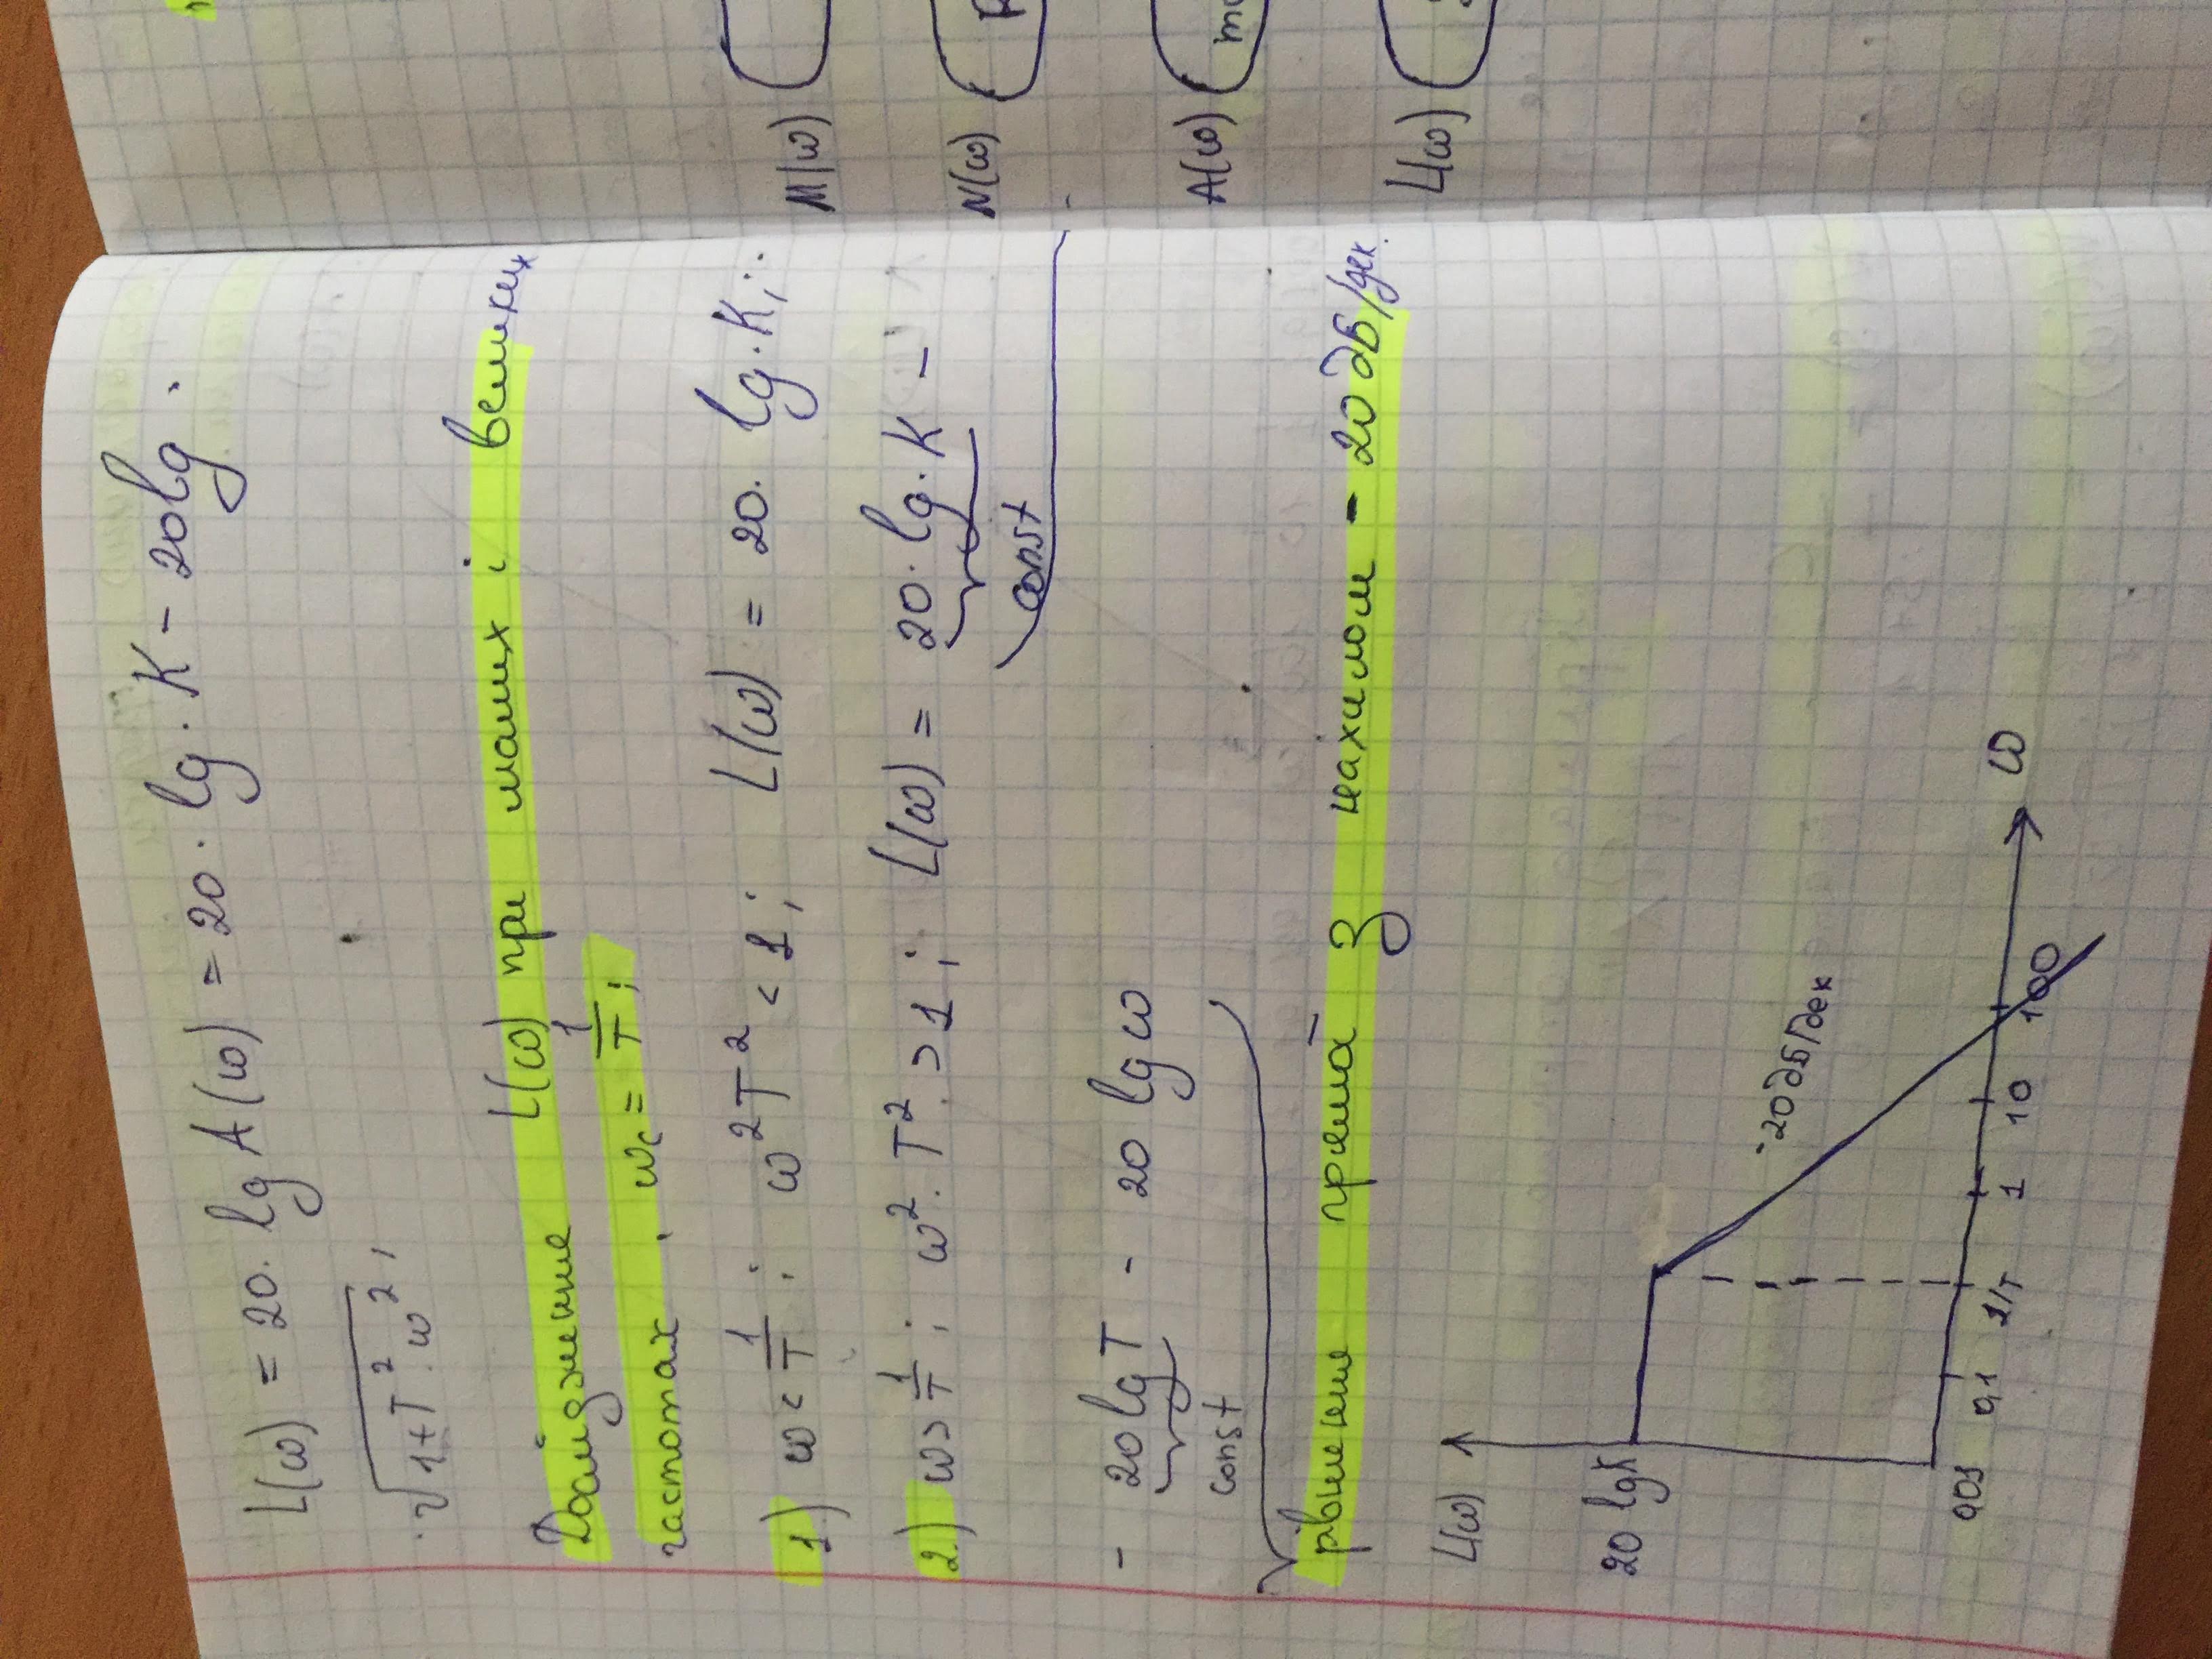 L(ω) = 20 · lg A(ω) = 20 · lg · K - 20lg ·
· √(1+T² · ω²),
Дослідження L(ω) при малих і великих
частотах , ωc = 1/T ;
1.) ω < 1/T ; ω²T² < 1 ; L(ω) = 20 · lg · K ;
2.) ω > 1/T ; ω² · T² > 1 ; L(ω) = 20 · lg · K -
const
- 20 lg T - 20 lg ω
const
рівняння прямої з нахилом - 20 дБ/дек.
L(ω)
20 lgK
-20 дБ/дек
0,01 0,1 1/T 1 10 100 ω
M(ω)
N(ω)
A(ω)
L(ω)